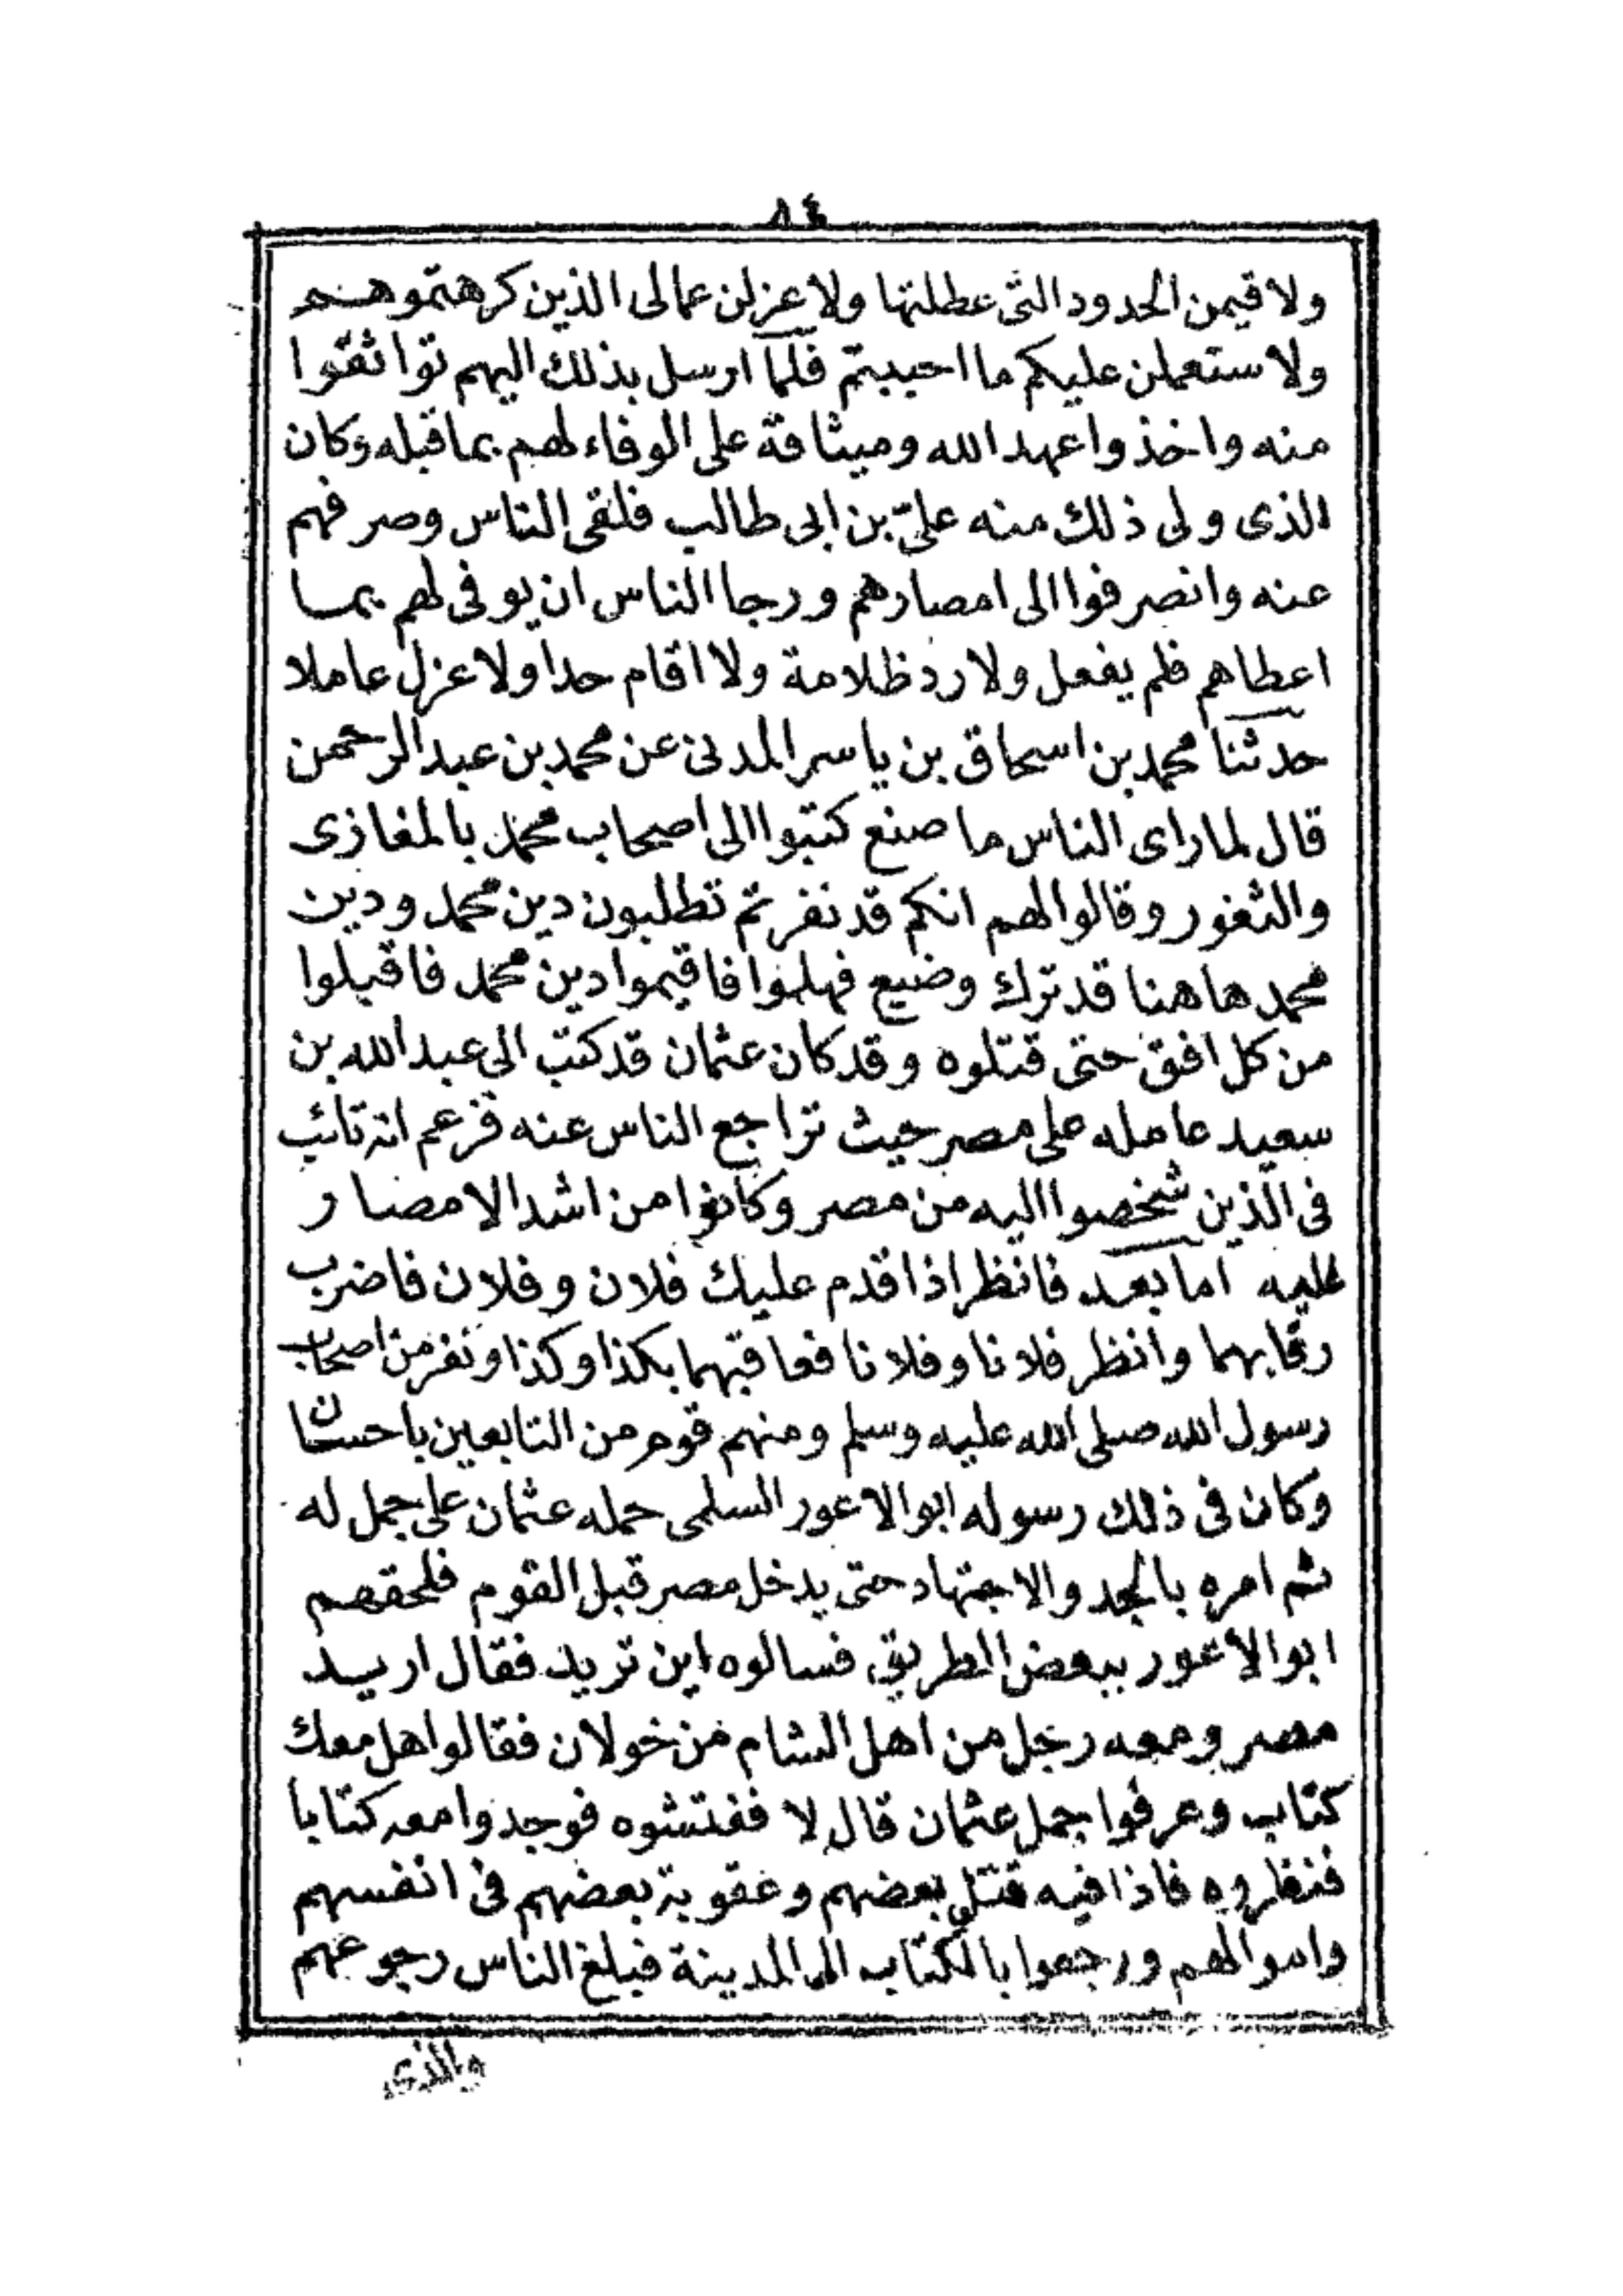 ٨٤
ولاقيمن الحدود التى عطلتها ولاعزلن عمالى الذين كرهتموهم
ولاستعملن عليكم ما احببتم فلما ارسل بذلك اليهم تواثقوا
منه واخذوا عهد الله وميثاقة على الوفاء لهم بما قبله وكان
الذى ولى ذلك منه علىّ بن ابى طالب فلقى الناس وصرفهم
عنه وانصرفوا الى امصارهم ورجا الناس ان يوفى لهم بما
اعطاهم فلم يفعل ولا رد ظلامة ولا اقام حدا ولا عزل عاملا
حدثنا محمد بن اسحاق بن ياسر المدنى عن محمد بن عبد الرحمن
قال لما راى الناس ما صنع كتبوا الى اصحاب محمد بالمغازى
والثغور وقالوا لهم انكم قد نفرتم تطلبون دين محمد ودين
محمد هاهنا قد ترك وضيع فهلموا فاقيموا دين محمد فاقبلوا
من كل افق حتى قتلوه وقد كان عثمان قد كتب الى عبد الله بن
سعيد عامله على مصر حيث تراجع الناس عنه فزعم انه تائب
فى الذين شخصوا اليه من مصر وكانوا من اشد الامصار
عليه اما بعد فانظر اذا قدم عليك فلان وفلان فاضرب
رقابهما وانظر فلانا وفلانا فعاقبهما بكذا وكذا ونفر من اصحاب
رسول الله صلى الله عليه وسلم ومنهم قوم من التابعين باحسان
وكان فى ذلك رسوله ابو الاعور السلمى حمله عثمان على جمل له
ثم امره بالجد والاجتهاد حتى يدخل مصر قبل القوم فلحقهم
ابو الاعور ببعض الطريق فسالوه اين تريد فقال اريد
مصر ومعه رجل من اهل الشام من خولان فقالوا هل معك
كتاب وعرفوا جمل عثمان قال لا ففتشوه فوجدوا معه كتابا
فنظروه فاذا فيه قتل بعضهم وعقوبة بعضهم فى انفسهم
واموالهم ورجعوا بالكتاب الى المدينة فبلغ الناس رجوعهم
والذى